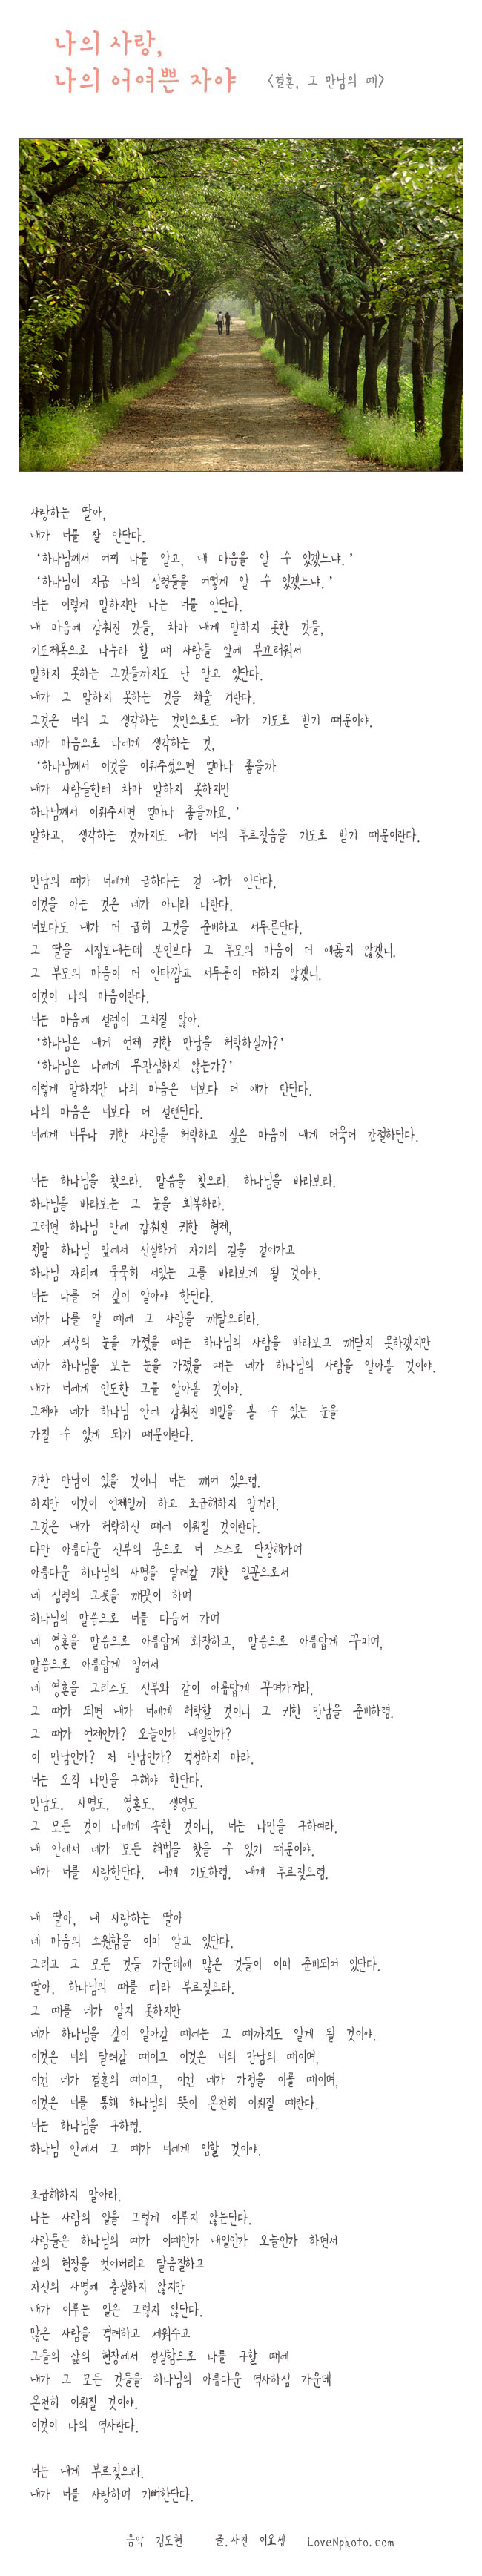 나의 사랑,
나의 어여쁜 자야 <결혼, 그 만남의 때>
사랑하는 딸아,
내가 너를 잘 안단다.
'하나님께서 어찌 나를 알고, 내 마음을 알 수 있겠느냐.'
'하나님이 지금 나의 심령들을 어떻게 알 수 있겠느냐.'
너는 이렇게 말하지만 나는 너를 안단다.
내 마음에 감춰진 것들, 차마 내게 말하지 못한 것들,
기도제목으로 나누라 할 때 사람들 앞에 부끄러워서
말하지 못하는 그것들까지도 난 알고 있단다.
내가 그 말하지 못하는 것을 채울 거란다.
그것은 너의 그 생각하는 것만으로도 내가 기도로 받기 때문이야.
네가 마음으로 나에게 생각하는 것,
'하나님께서 이것을 이뤄주셨으면 얼마나 좋을까
내가 사람들한테 차마 말하지 못하지만
하나님께서 이뤄주시면 얼마나 좋을까요.'
말하고, 생각하는 것까지도 내가 너의 부르짖음을 기도로 받기 때문이란다.
만남의 때가 너에게 급하다는 걸 내가 안단다.
이것을 아는 것은 네가 아니라 나란다.
너보다도 내가 더 급히 그것을 준비하고 서두른단다.
그 딸을 시집보내는데 본인보다 그 부모의 마음이 더 애끓지 않겠니.
그 부모의 마음이 더 안타깝고 서두름이 더하지 않겠니.
이것이 나의 마음이란다.
너는 마음에 설렘이 그치질 않아.
'하나님은 내게 언제 귀한 만남을 허락하실까?'
'하나님은 나에게 무관심하지 않는가?'
이렇게 말하지만 나의 마음은 너보다 더 애가 탄단다.
나의 마음은 너보다 더 설렌단다.
너에게 너무나 귀한 사람을 허락하고 싶은 마음이 내게 더욱더 간절하단다.
너는 하나님을 찾으라. 말씀을 찾으라. 하나님을 바라보라.
하나님을 바라보는 그 눈을 회복하라.
그러면 하나님 안에 감춰진 귀한 형제,
정말 하나님 앞에서 신실하게 자기의 길을 걸어가고
하나님 자리에 묵묵히 서있는 그를 바라보게 될 것이야.
너는 나를 더 깊이 알아야 한단다.
네가 나를 알 때에 그 사람을 깨달으리라.
네가 세상의 눈을 가졌을 때는 하나님의 사람을 바라보고 깨닫지 못하겠지만
네가 하나님을 보는 눈을 가졌을 때는 네가 하나님의 사람을 알아볼 것이야.
내가 너에게 인도한 그를 알아볼 것이야.
그제야 네가 하나님 안에 감춰진 비밀을 볼 수 있는 눈을
가질 수 있게 되기 때문이란다.
귀한 만남이 있을 것이니 너는 깨어 있으렴.
하지만 이것이 언제일까 하고 조급해하지 말거라.
그것은 내가 허락하신 때에 이뤄질 것이란다.
다만 아름다운 신부의 몸으로 너 스스로 단장해가며
아름다운 하나님의 사명을 달려갈 귀한 일꾼으로서
네 심령의 그릇을 깨끗이 하며
하나님의 말씀으로 너를 다듬어 가며
네 영혼을 말씀으로 아름답게 화장하고, 말씀으로 아름답게 꾸미며,
말씀으로 아름답게 입어서
네 영혼을 그리스도 신부와 같이 아름답게 꾸며가거라.
그 때가 되면 내가 너에게 허락할 것이니 그 귀한 만남을 준비하렴.
그 때가 언제인가? 오늘인가 내일인가?
이 만남인가? 저 만남인가? 걱정하지 마라.
너는 오직 나만을 구해야 한단다.
만남도, 사명도, 영혼도, 생명도
그 모든 것이 나에게 속한 것이니, 너는 나만을 구하여라.
내 안에서 네가 모든 해법을 찾을 수 있기 때문이야.
내가 너를 사랑한단다. 내게 기도하렴. 내게 부르짖으렴.
내 딸아, 내 사랑하는 딸아
네 마음의 소원함을 이미 알고 있단다.
그리고 그 모든 것들 가운데에 많은 것들이 이미 준비되어 있단다.
딸아, 하나님의 때를 따라 부르짖으라.
그 때를 네가 알지 못하지만
네가 하나님을 깊이 알아갈 때에는 그 때까지도 알게 될 것이야.
이것은 너의 달려갈 때이고 이것은 너의 만남의 때이며,
이건 네가 결혼의 때이고, 이건 네가 가정을 이룰 때이며,
이것은 너를 통해 하나님의 뜻이 온전히 이뤄질 때란다.
너는 하나님을 구하렴.
하나님 안에서 그 때가 너에게 임할 것이야.
조급해하지 말아라.
나는 사람의 일을 그렇게 이루지 않는단다.
사람들은 하나님의 때가 이때인가 내일인가 오늘인가 하면서
삶의 현장을 벗어버리고 달음질하고
자신의 사명에 충실하지 않지만
내가 이루는 일은 그렇지 않단다.
많은 사람을 격려하고 세워주고
그들의 삶의 현장에서 성실함으로 나를 구할 때에
내가 그 모든 것들을 하나님의 아름다운 역사하심 가운데
온전히 이뤄질 것이야.
이것이 나의 역사란다.
너는 내게 부르짖으라.
내가 너를 사랑하며 기뻐한단다.
음악 김도현 글.사진 이요셉 LoveNphoto.com